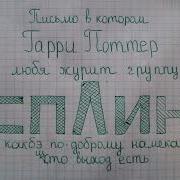 Письмо в котором
Гарри Поттер
любя журит группу
СПЛИН
какбэ по-доброму намека
что выход есть